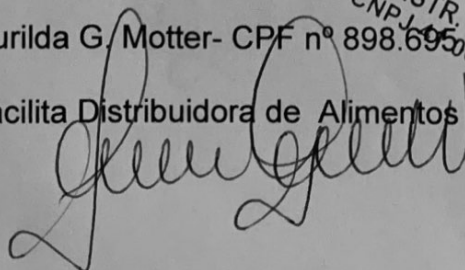 STR.
CNPJ
urilda G. Motter- CPF nº 898.695
acilita Distribuidora de Alimentos